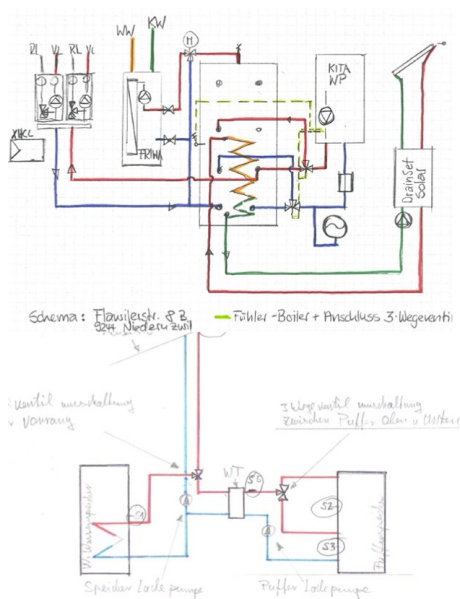 WW KW
RL VL RL VL
M
KITA
WP
FRIWA
DrainSet
Solar
Schema: Flawilerstr. 8B
9244 Niederuzwil
Fühler-Boiler + Anschluss 3-Wegeventil
Ventil umschaltung
Vorrang
3 Wege Ventil umschaltung
Zwischen Puffer Oben u Unten
WT
S1
S2
S3
Pufferspeicher
Speicher Lade pumpe
Puffer Lade pumpe